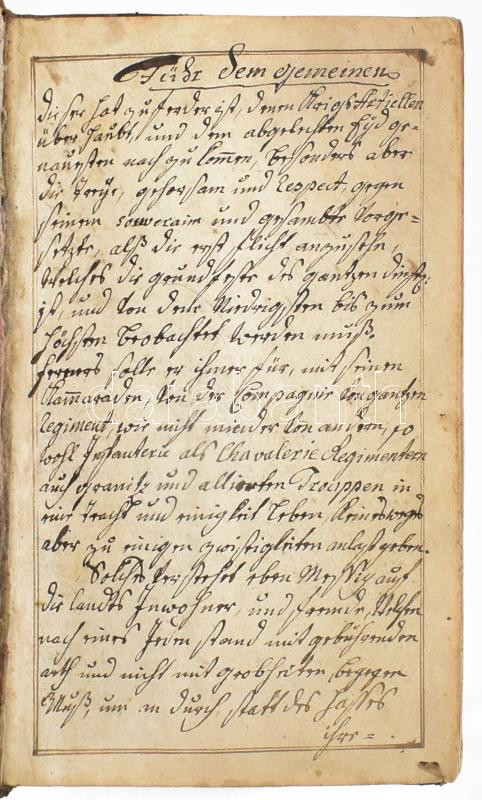 Führ dem gemeinen
dieser hat zuforderist, denen Krigs Articullen
überhaubt, und dem abgelechten Eyd ge=
nauesten nach zu kommen, besonders aber
die Treye, gehorsam und Respect, gegen
seinem souverain und gesambte Vorge=
setzte, alß die erst Plicht anzusehen,
Welches die grundfeste des gantzen dienst
ist, und von dem Nidrigsten bis zum
Höchsten beobachtet werden muß.
ferners solle er ihmer für, mit seinen
Kammaraden, von der Compagnie von gantzen
Regiment, wie nicht minder von andern, so
wohl Infanterie als Chavalerie Regimentern
auch granitz und allierten Trouppen in
eine Tracht und einigkeit leben, keineswegs
aber zu einigen zwistigkeiten anlaß geben.
Solches verstehet eben Messig auf
die landts Inwohner, und fremde, Welchen
nach eines Jeden stand mit gebührenden
arth und nicht mit grobheiten, begegen
Muß, um andurch statt des Hasses
ihre=
darabanth